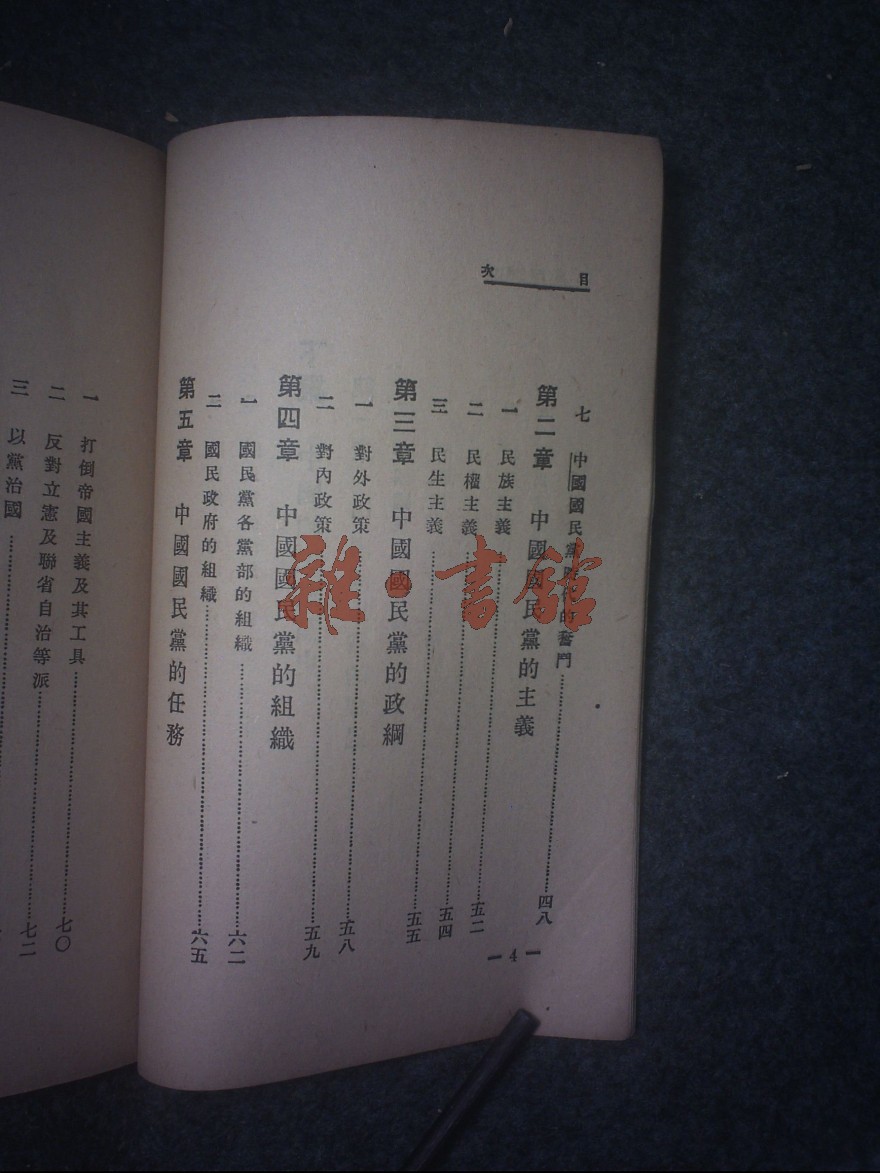 目次
七 中國國民黨 的奮鬥……四八
第二章 中國國民黨的主義
一 民族主義……五二
二 民權主義……五四
三 民生主義……五五
第三章 中國國民黨的政綱
一 對外政策……五八
二 對內政策……五九
第四章 中國國民黨的組織
一 國民黨各黨部的組織……六二
二 國民政府的組織……六五
第五章 中國國民黨的任務
一 打倒帝國主義及其工具……七〇
二 反對立憲及聯省自治等派……七二
三 以黨治國……
— 4 —
雜·書館